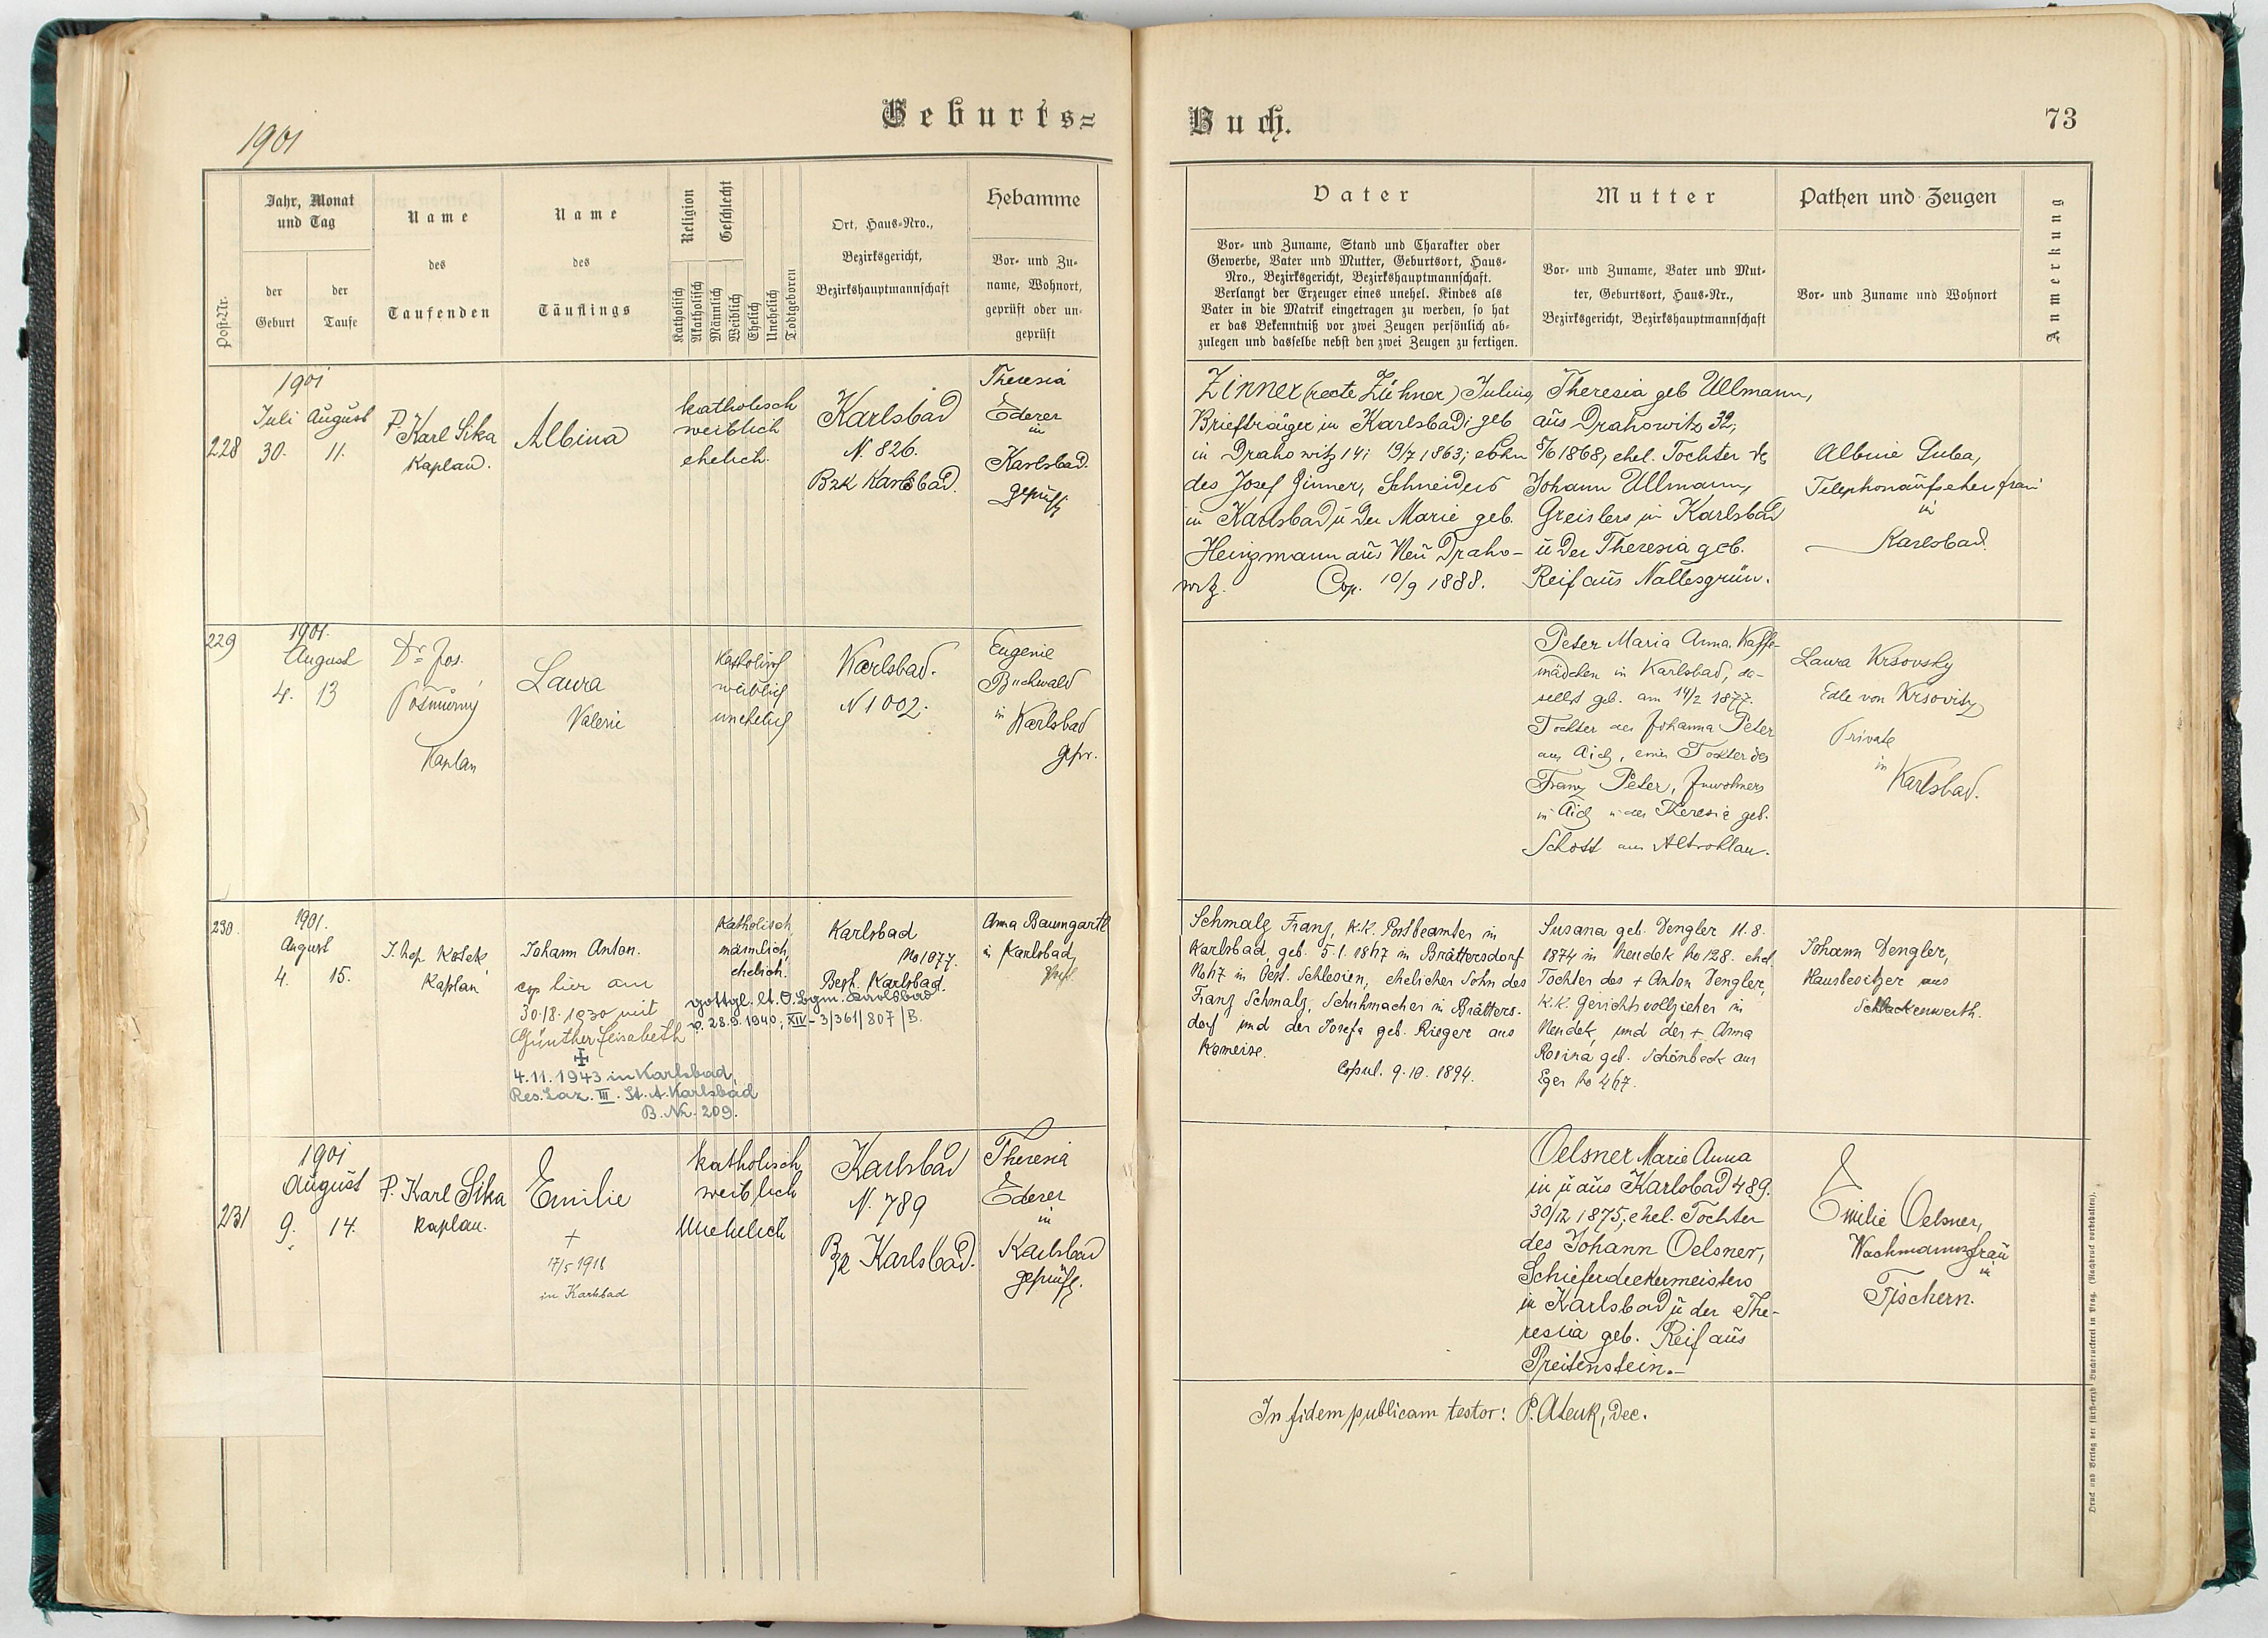 1901
Geburts=
Buch.
73
Post-Nr.
Jahr, Monat
und Tag
der
Geburt
der
Taufe
Name
des
Taufenden
Name
des
Täuflings
Religion
Geschlecht
Katholisch
Akatholisch
Männlich
Weiblich
Ehelich
Unehelich
Todtgeboren
Ort, Haus-Nro.,
Bezirksgericht,
Bezirkshauptmannschaft
Hebamme
Vor- und Zu-
name, Wohnort,
geprüft oder un-
geprüft
Vater
Vor- und Zuname, Stand und Charakter oder
Gewerbe, Vater und Mutter, Geburtsort, Haus-
Nro., Bezirksgericht, Bezirkshauptmannschaft.
Verlangt der Erzeuger eines unehel. Kindes als
Vater in die Matrik eingetragen zu werden, so hat
er das Bekenntniß vor zwei Zeugen persönlich ab-
zulegen und dasselbe nebst den zwei Zeugen zu fertigen.
Mutter
Vor- und Zuname, Vater und Mut-
ter, Geburtsort, Haus-Nr.,
Bezirksgericht, Bezirkshauptmannschaft
Pathen und Zeugen
Vor- und Zuname und Wohnort
Anmerkung
228
1901
Juli August
30. 11.
P. Karl Sika
Kaplan.
Albina
katholisch
weiblich
ehelich.
Karlsbad
N. 826.
Bzk Karlsbad.
Theresia
Ederer
in
Karlsbad.
geprüft
Zinner (recte Zühner) Julius,
Briefträger in Karlsbad; geb
in Drahowitz 14; 19/7 1863; ehSohn
des Josef Zinner, Schneiders
in Karlsbad u der Marie geb.
Heinzmann aus Neu Draho-
witz. Cop. 10/9 1888.
Theresia geb Ullmann,
aus Drahowitz 32;
1868; ehel. Tochter des
Johann Ullmann,
Greislers in Karlsbad
u der Theresia geb.
Reif aus Nallesgrün.
Albine Luba,
Telephonaufsehersfrau
in
Karlsbad.
229
1901.
August
4. 13
Dr. Jos.
Pošmůrný
Kaplan
Laura
Valerie
Katholisch
weiblich
unehelich
Karlsbad.
N 1002.
Eugenie
Buchwald
in Karlsbad
gepr.
Peter Maria Anna. Kaffe-
mädchen in Karlsbad, da-
selbst geb. am 14/2 1877.
Tochter der Johanna Peter
aus Aich, einer Tochter des
Franz Peter, Inwohners
in Aich u der Theresia geb.
Schott aus Altrohlau.
Laura Krsovsky
Edle von Krsovitz
Private
in
Karlsbad.
230.
1901.
August
4. 15.
J. Kostek
Kaplan
Johann Anton.
cop hier am
30.8.1930 mit
Günther Elisabeth
4.11.1943 in Karlsbad,
Res. Laz. III. St. A. Karlsbad
B. Nr. 209.
Katholisch,
männlich,
ehelich.
gottgl. lt. O. Bgm. Karlsbad
v. 28.9.1940; XIV - 3/361/807/B.
Karlsbad
No 1077.
Bezh. Karlsbad.
Anna Baumgartl
in Karlsbad
Schmalz Franz, K.K. Postbeamter in
Karlsbad, geb. 5.1.1867 in Brättersdorf
No 47 in Öest. Schlesien, ehelicher Sohn des
Franz Schmalz, Schuhmacher in Brätters-
dorf und der Josefa geb. Rieger aus
Kameise.
Copul. 9.10.1894.
Susana geb. Dengler 11.8.
1874 in Neudek No 128. ehel.
Tochter des + Anton Dengler,
K.K. Gerichtsvollzieher in
Neudek, und der + Anna
Rosina geb. Schönbeck aus
Eger No 467.
Johann Dengler,
Hausbesitzer aus
Schlackenwerth.
231
1901
August
9. 14.
P. Karl Sika
Kaplan.
Emilie
+
17/5 1918
in Karlsbad
katholisch
weiblich
Unehelich
Karlsbad
N. 789
Bzk Karlsbad.
Theresia
Ederer
in
Karlsbad
geprüft.
Oelsner Marie Anna
in u aus Karlsbad 489.
30/12 1875; ehel. Tochter
des Johann Oelsner,
Schieferdeckermeisters
in Karlsbad u der The-
resia geb. Reif aus
Preitenstein.-
Emilie Oelsner,
Wachmannsfrau
in
Fischern.
In fidem publicam testor: P. Alenk, Dec.
Druck und Verlag der fürst-erzb Buchdruckerei in Prag. (Nachdruck vorbehalten).